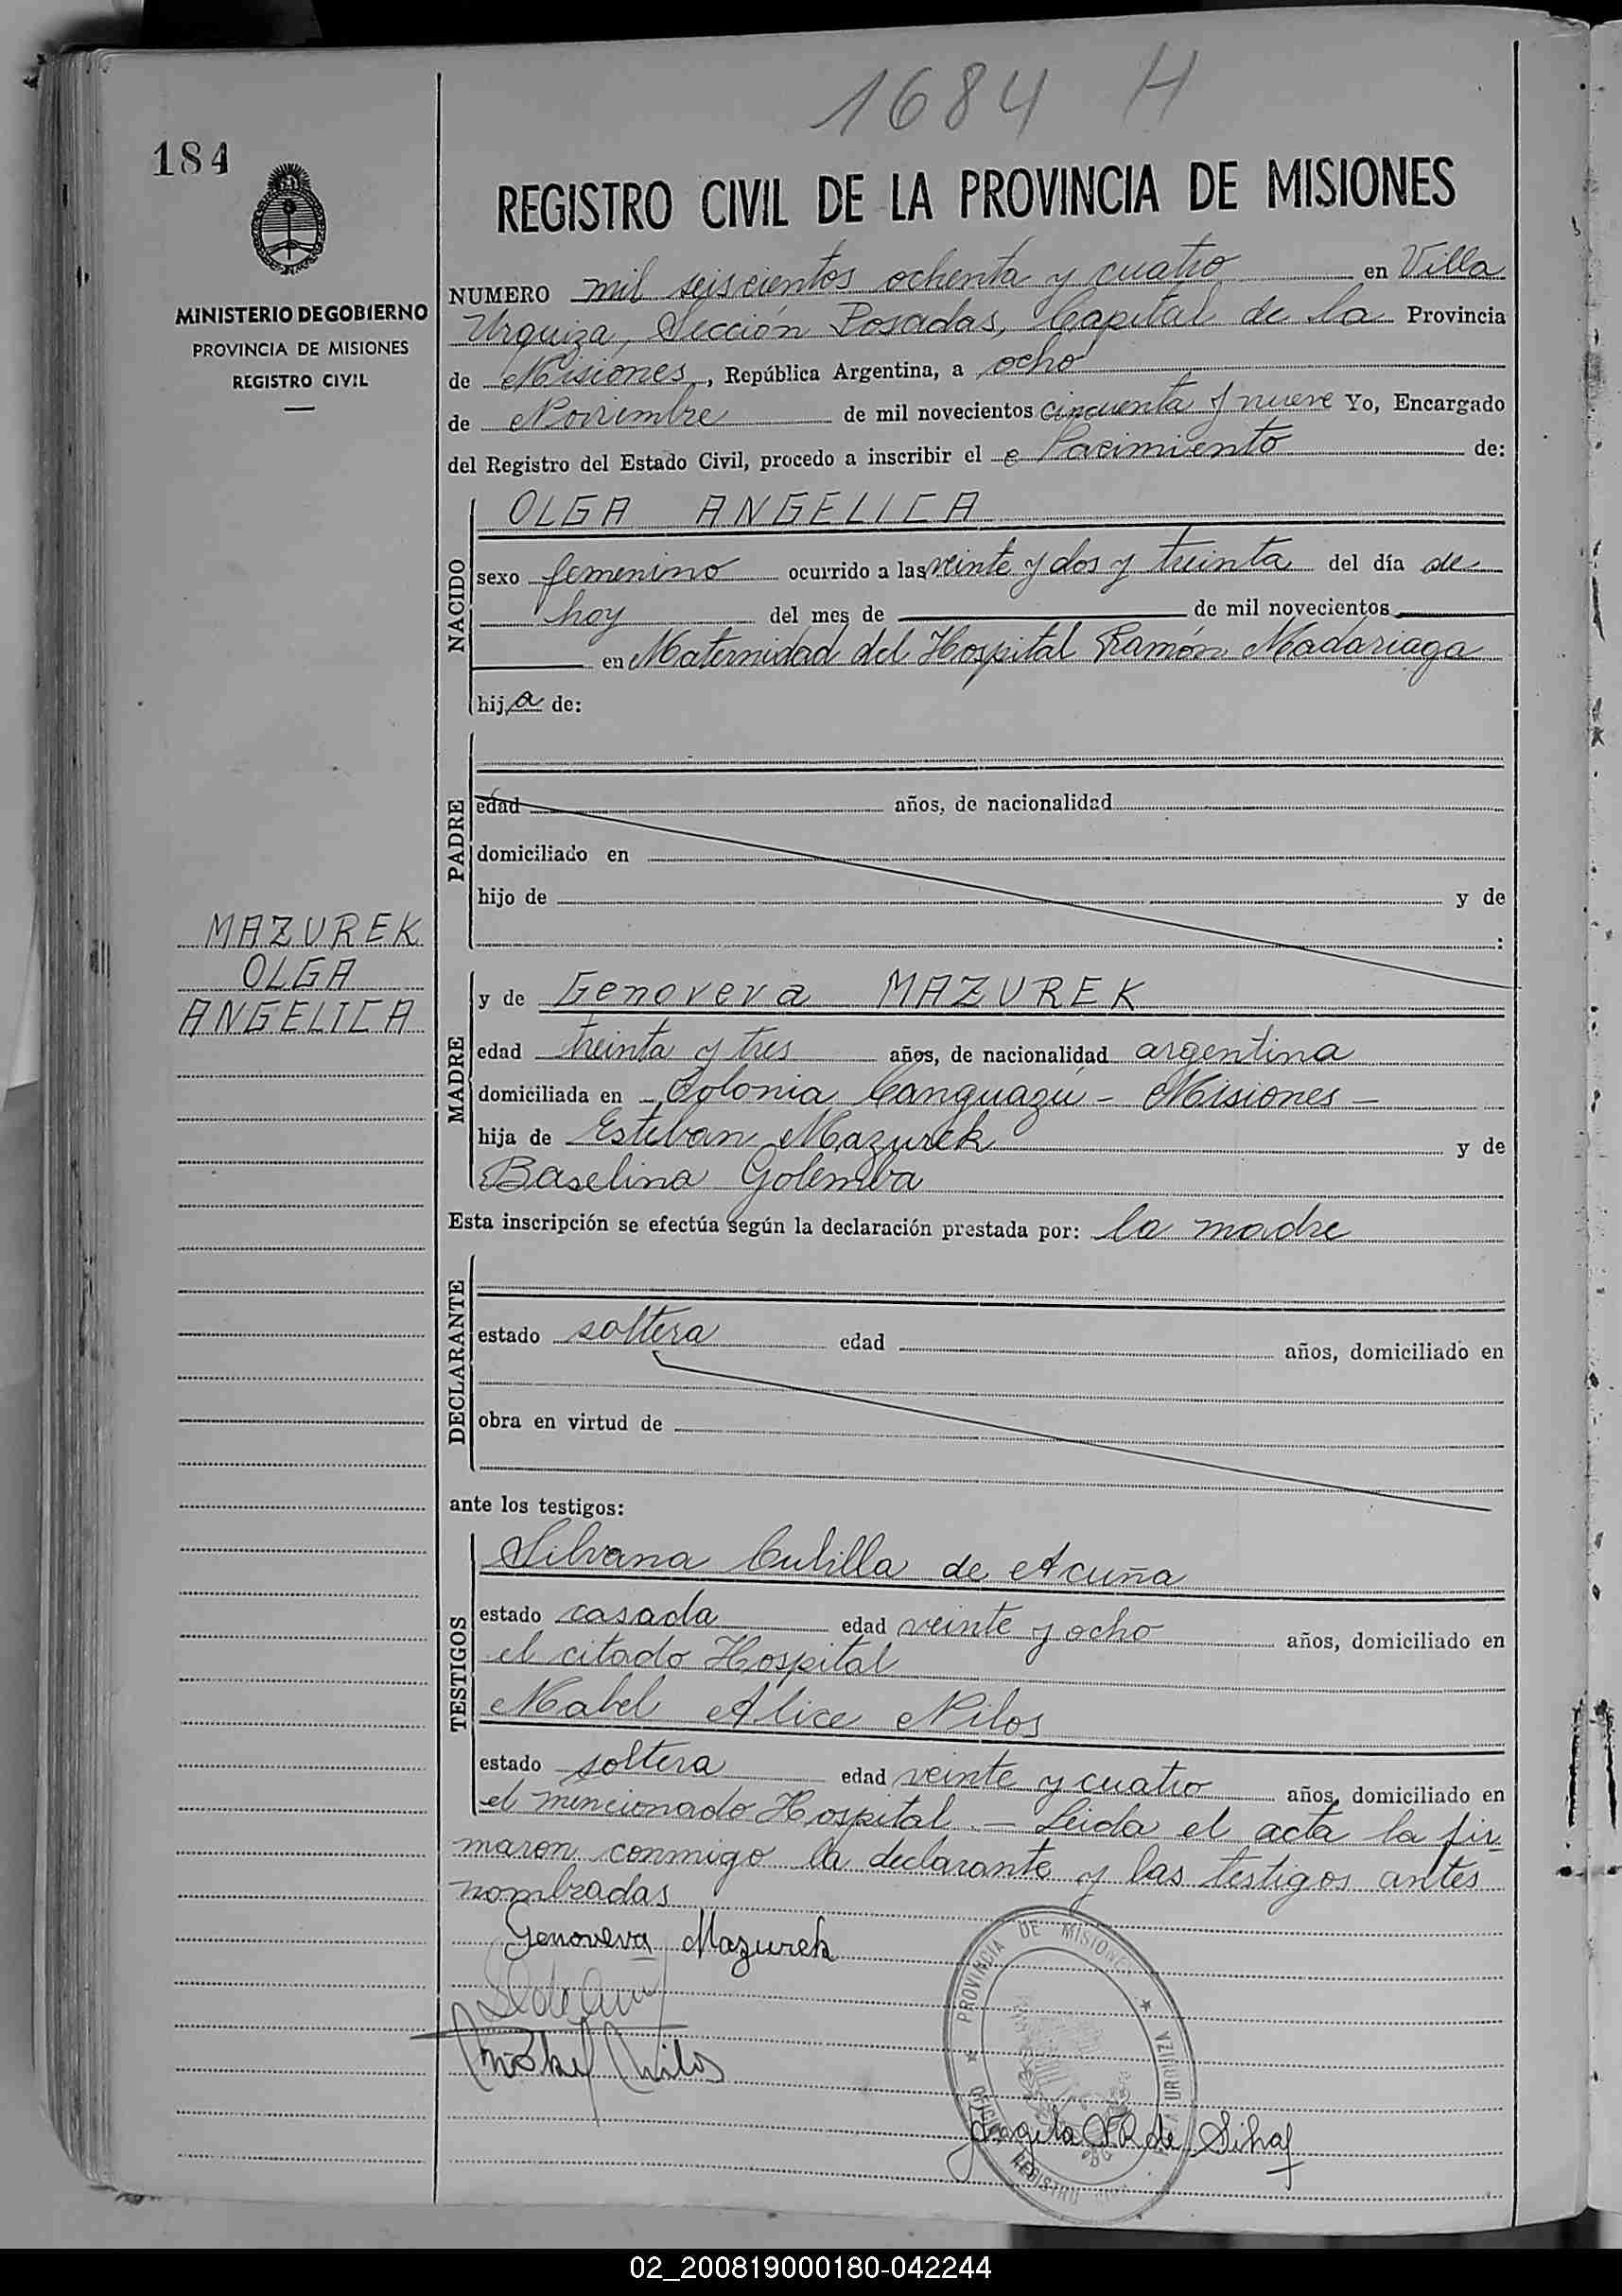 1684 H
184
REGISTRO CIVIL DE LA PROVINCIA DE MISIONES
MINISTERIO DE GOBIERNO
PROVINCIA DE MISIONES
REGISTRO CIVIL
NUMERO mil seiscientos ochenta y cuatro en Villa
Urquiza, Sección Posadas, Capital de la Provincia
de Misiones, República Argentina, a ocho
de Noviembre de mil novecientos cincuenta y nueve Yo, Encargado
del Registro del Estado Civil, procedo a inscribir el Nacimiento de:
NACIDO
OLGA ANGELICA
sexo femenino ocurrido a las veinte y dos y treinta del día de
hoy del mes de de mil novecientos
en Maternidad del Hospital Ramón Madariaga
hija de:
PADRE
edad años, de nacionalidad
domiciliado en
hijo de y de
:
MAZUREK
OLGA
ANGELICA
MADRE
y de Genoveva MAZUREK
edad treinta y tres años, de nacionalidad argentina
domiciliada en Colonia Canguazú - Misiones -
hija de Esteban Mazurek y de
Baselina Golemba
Esta inscripción se efectúa según la declaración prestada por: la madre
DECLARANTE
estado soltera edad años, domiciliado en
obra en virtud de
ante los testigos:
TESTIGOS
Silvana Cubilla de Acuña
estado casada edad veinte y ocho años, domiciliado en
el citado Hospital
Mabel Alice Nilos
estado soltera edad veinte y cuatro años, domiciliado en
el mencionado Hospital. - Leida el acta la fir
maron conmigo la declarante y las testigos antes
nombradas
Genoveva Mazurek
PROVINCIA DE MISIONES
URQUIZA
REGISTRO
02_200819000180-042244